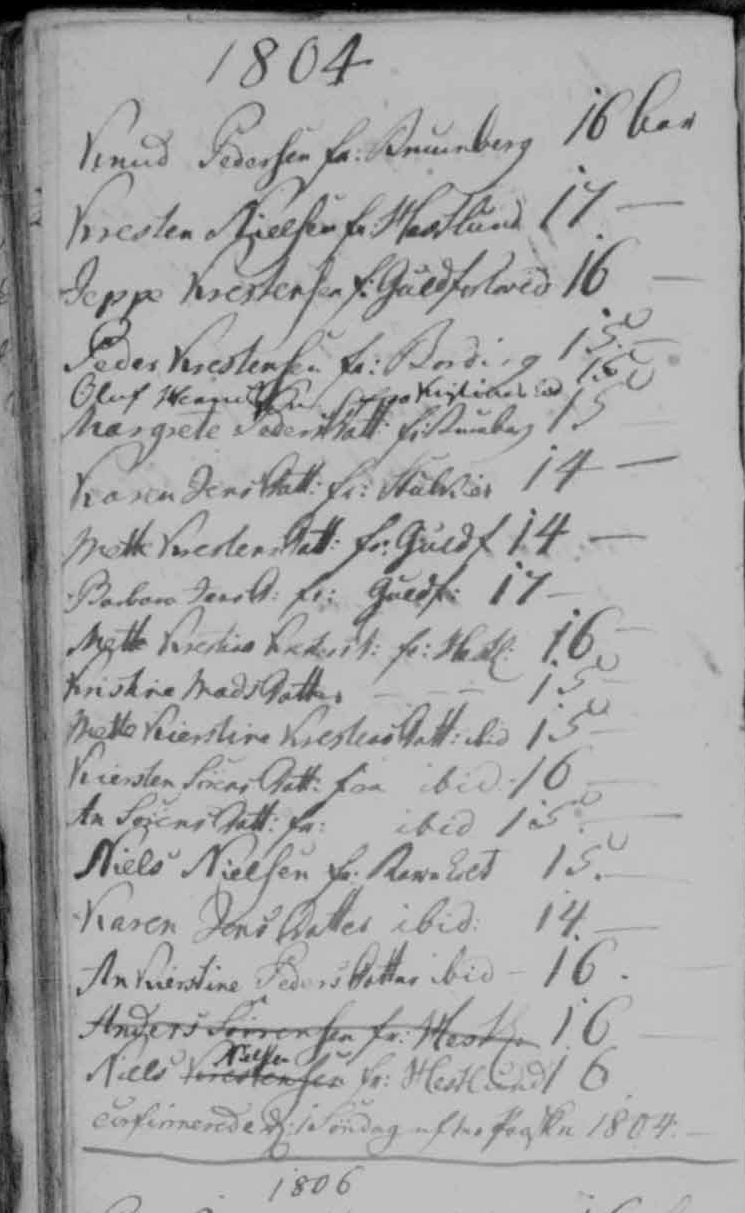 1804
Knud Pedersen fr: Bruunberg 16 bar
Kresten Nielsen fr: Hestlund 17 —
Jeppe Krestensen f: Guldforhoved 16 —
Peder Krestensen fr: Bording 15 —
Oluf 15
Margrete Pedersdatt: fr: 15 —
Karen Jensdatt: fr: 14 —
Mette Krestensdatt: fr: Guldf 14 —
Barbara Jensd: fr: Guldf: 17 —
Mette fr: Hestl: 16 —
Kristine Madsdatter — — — 15 —
Mette Kierstine Krestensdatt: ibid 15 —
Kiersten Sørensdatt: fra ibid - 16 —
An Sørensdatt: fr: ibid 15 —
Niels Nielsen fr: 15 —
Karen Jensdatter ibid: 14 —
An Kierstine Pedersdatter ibid - 16. —
Anders Sørrensen fr: Hestl: 16 —
Nielsen
Niels Krestensen fr: Hestlund 16
confirmerede d: 1 Søndag efter Paaskn 1804. —
1806